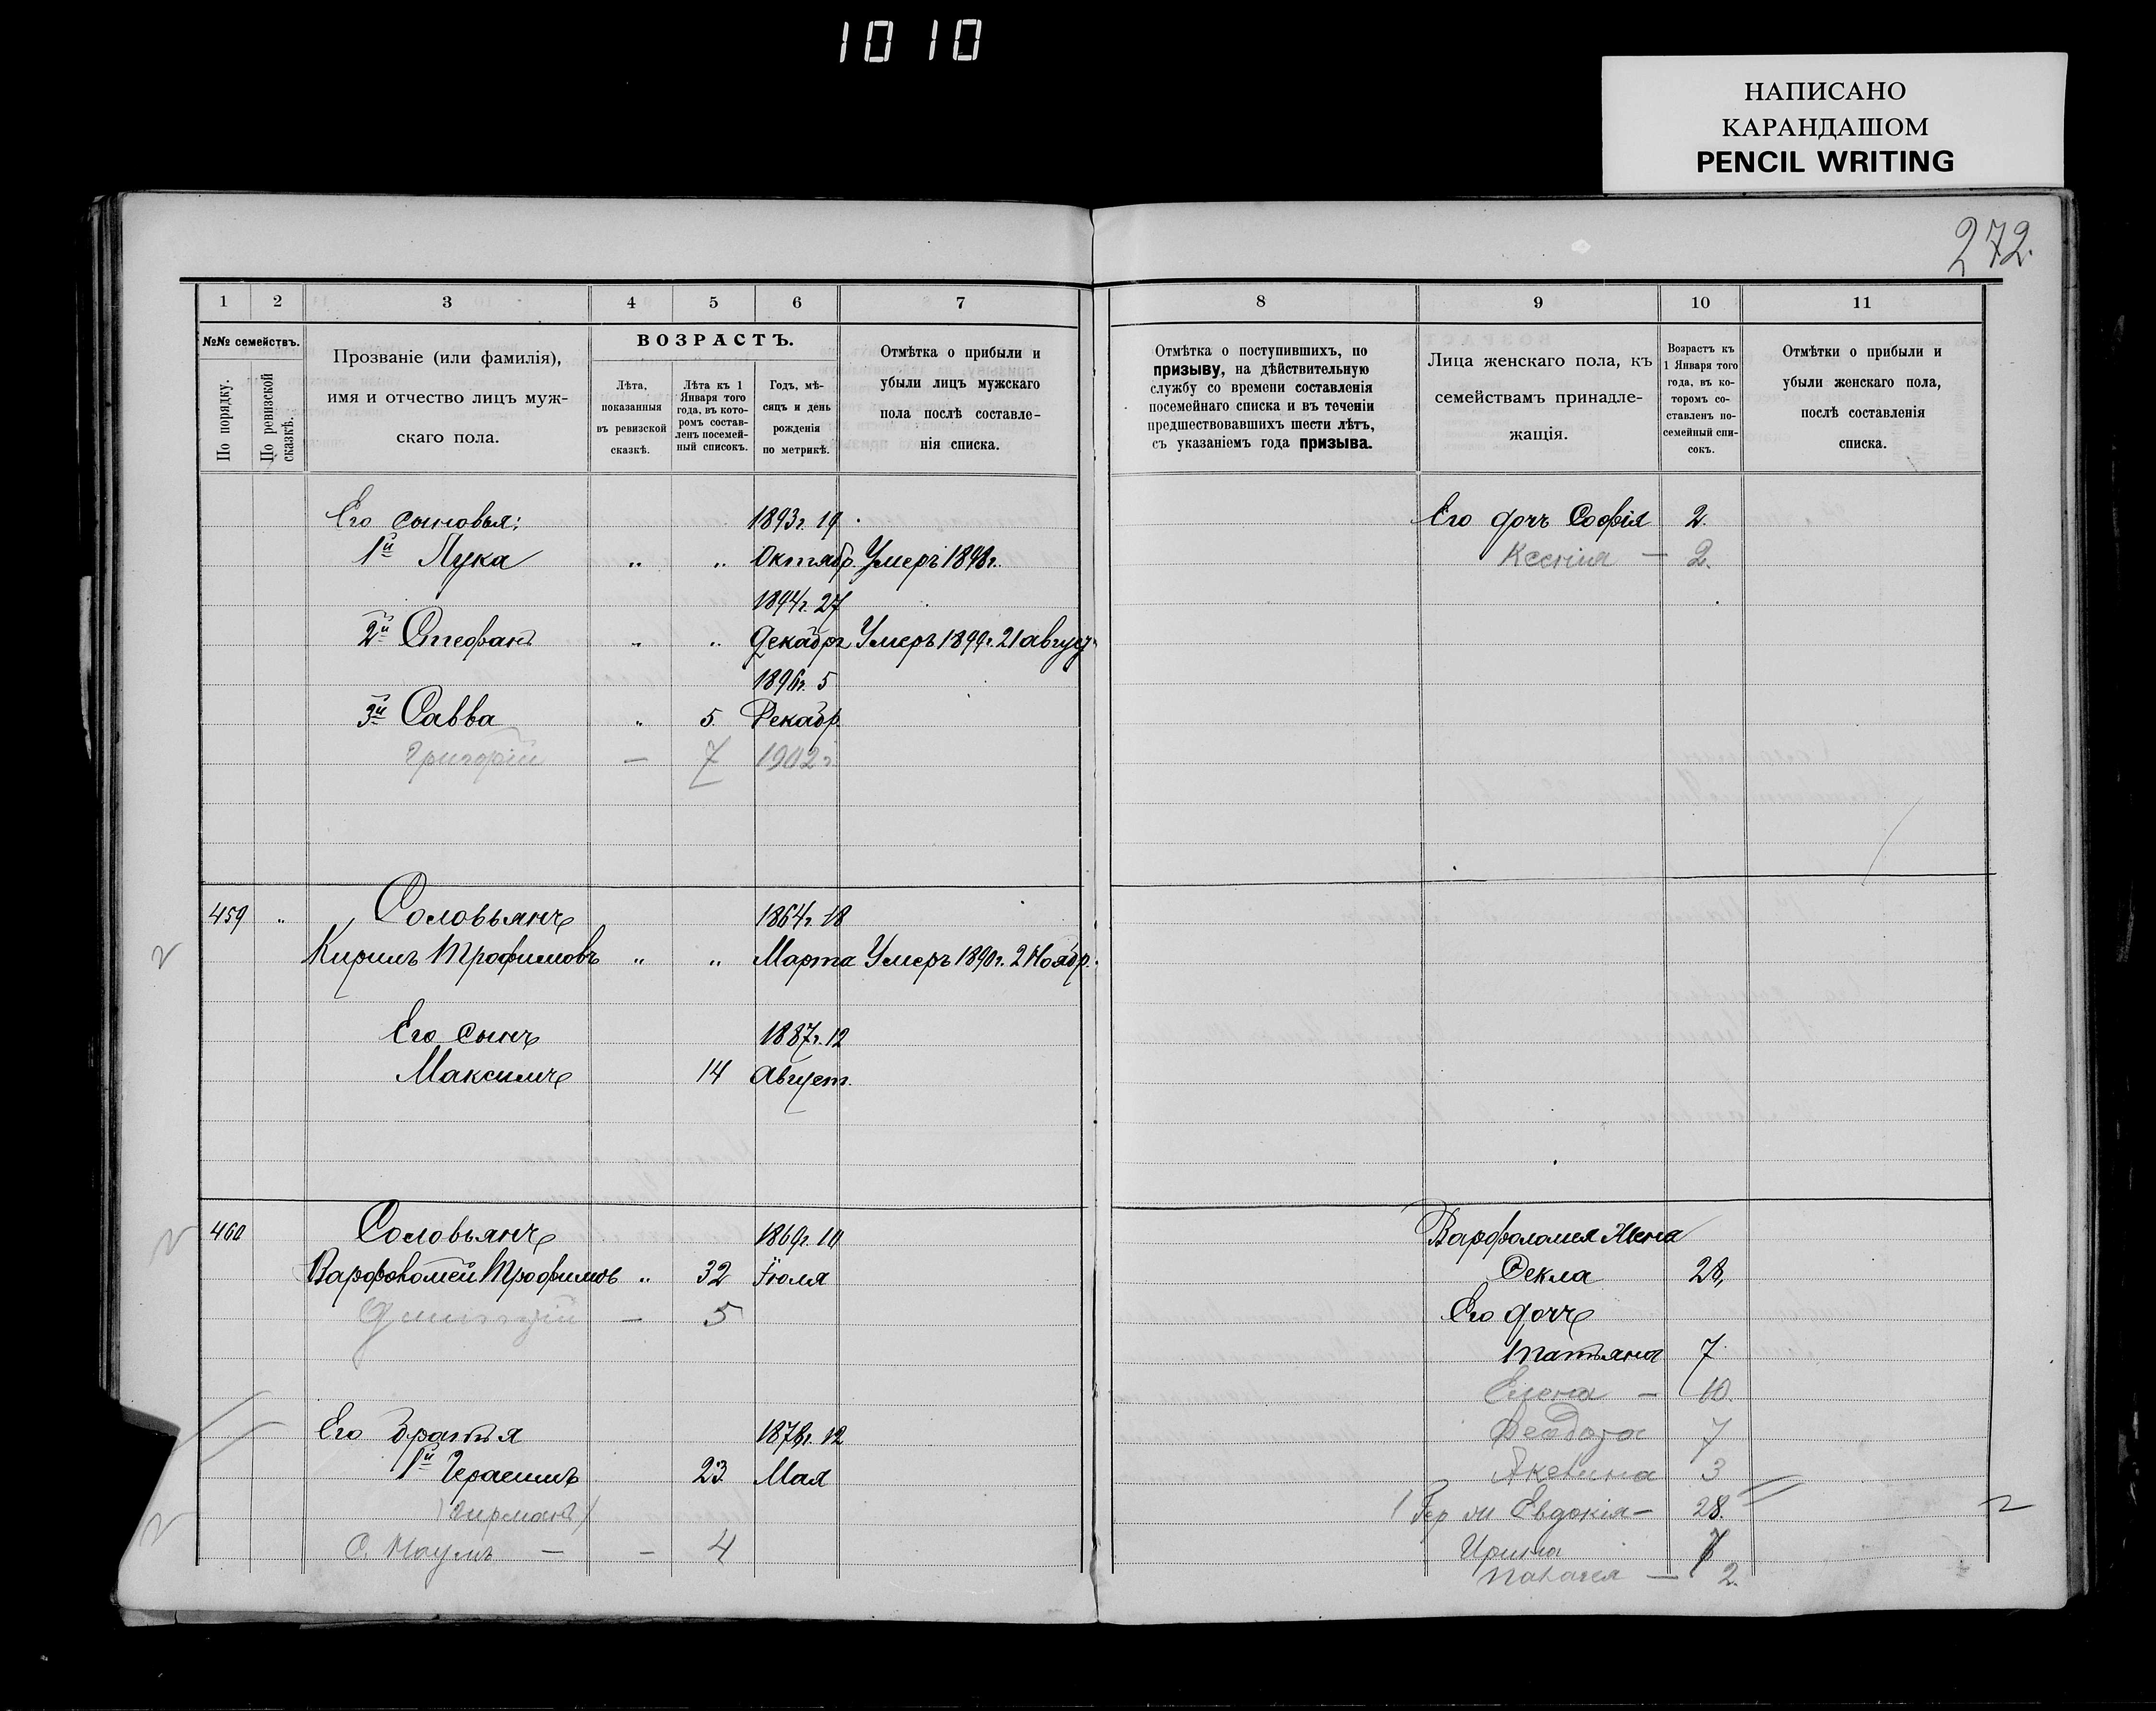 1010
НАПИСАНО
КАРАНДАШОМ
PENCIL WRITING
272.
1 2 3 4 5 6 7
№№ семействъ.
По порядку.
По ревизской сказкѣ.
Прозваніе (или фамилія),
имя и отчество лицъ муж-
скаго пола.
ВОЗРАСТЪ.
Лѣта,
показанныя
въ ревизской
сказкѣ.
Лѣта къ 1
Января того
года, въ кото-
ромъ состав-
ленъ посемей-
ный списокъ.
Годъ, мѣ-
сяцъ и день
рожденія
по метрикѣ.
Отмѣтка о прибыли и
убыли лицъ мужскаго
пола послѣ составле-
нія списка.
Его сыновья: 1893г. 19
1й Лука " " Октябр. Умеръ 1898г.
1894г. 27
2й Стефанъ " " Декабря Умеръ 1899г. 21 август
1896г. 5
3й Савва " 5 Декабр.
Григорій — 7 1902г
459 " Соловьянъ 1864г. 18
Кирилъ Трофимовъ " " Марта Умеръ 1890г. 2 Ноябр.
Его сынъ 1887г. 12
Максимъ 14 Август.
460 Соловьянъ 1869г. 10
Варфоломей Трофимовъ " 32 Іюля
Дмитрій — 5
Его братья 1878г. 12
1й Герасимъ 23 Мая
С. Наумъ — — 4
8 9 10 11
Отмѣтка о поступившихъ, по
призыву, на дѣйствительную
службу со времени составленія
посемейнаго списка и въ теченіи
предшествовавшихъ шести лѣтъ,
съ указаніемъ года призыва.
Лица женскаго пола, къ
семействамъ принадле-
жащія.
Возрастъ къ
1 Января того
года, въ ко-
торомъ со-
ставленъ по-
семейный спи-
сокъ.
Отмѣтки о прибыли и
убыли женскаго пола,
послѣ составленія
списка.
Его дочъ Софія 2.
Ксенія — 2.
Варфоломея Жена
Фекла 28,
Его дочъ
Татьяна 7.
Елена — 10.
Феодора 7
Аксинья 3
Гер жи Евдокія — 28.
Ирина 7
Палагея — 2.